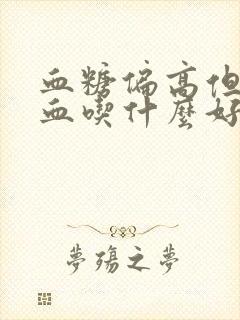 血糖偏高但
血喫什麼好
夢殤之夢